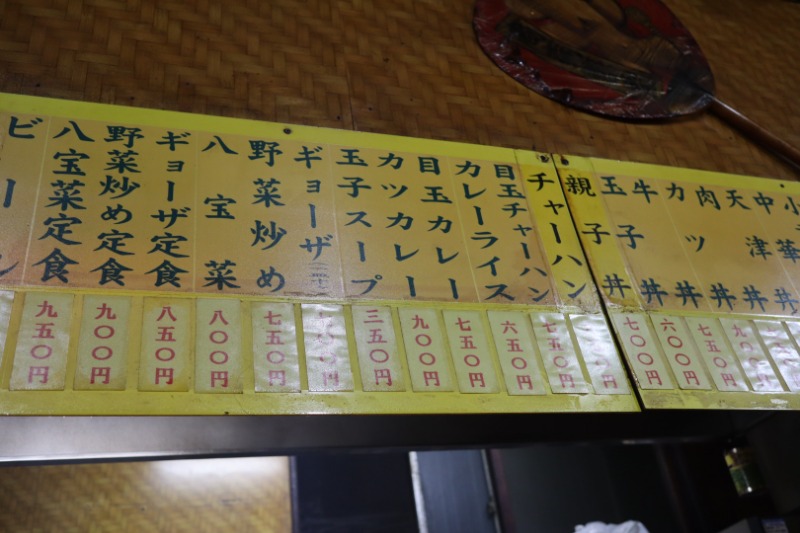 中華
天津丼
肉丼
カツ丼
牛丼
玉子丼
親子丼
チャーハン
目玉チャーハン
カレーライス
目玉カレー
カツカレー
玉子スープ
ギョーザ
野菜炒め
八宝菜
ギョーザ定食
野菜炒め定食
八宝菜定食
ビール
七五〇円
六〇〇円
七〇〇円
七五〇円
六五〇円
七五〇円
九〇〇円
三五〇円
七五〇円
八〇〇円
八五〇円
九〇〇円
九五〇円